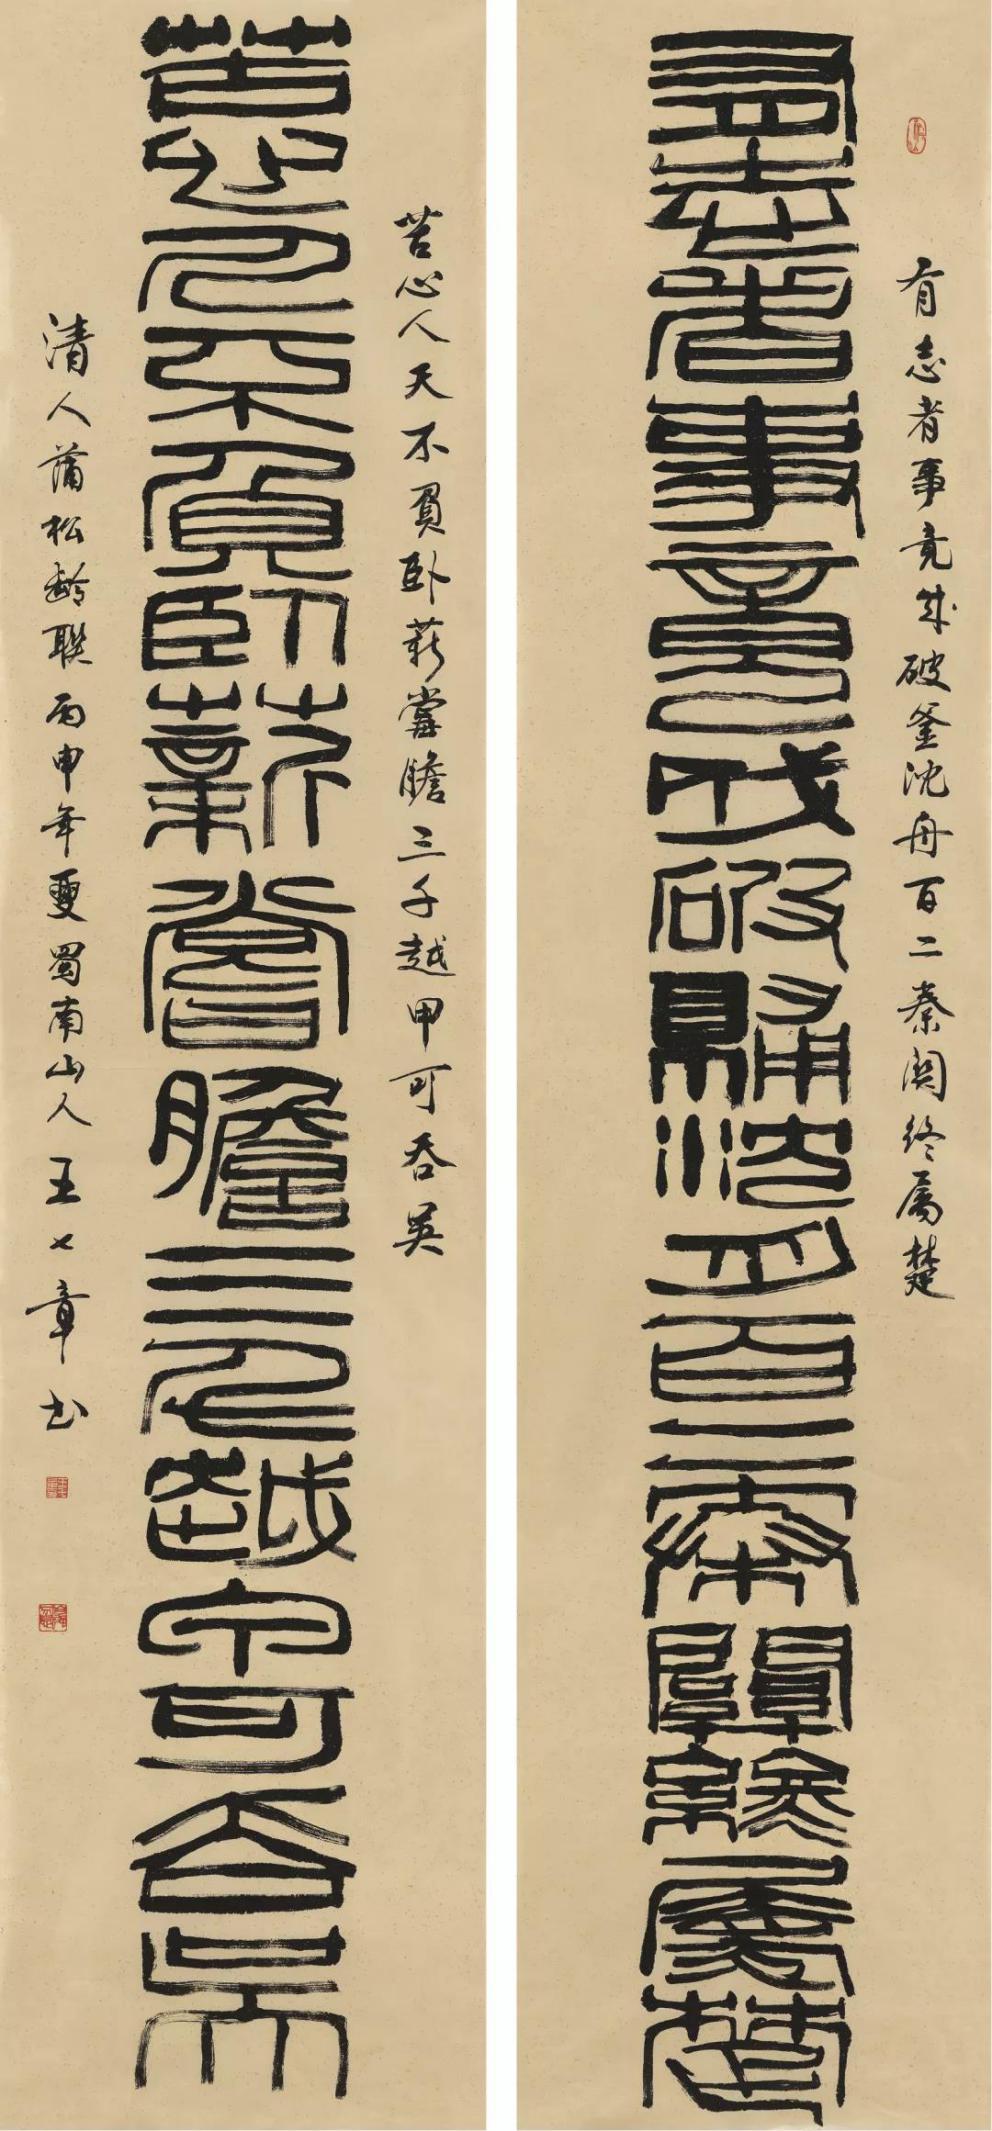 有志者事竟成破釜沈舟百二秦関終属楚
有志者事竟成破鬴沈舟百二秦關終屬楚
苦心人天不負卧薪嘗膽三千越甲可吞吳
苦心人不負臥薪嘗膽三千越甲可吞吳
清人蒲松齡聯丙申年夏蜀南山人王七章书